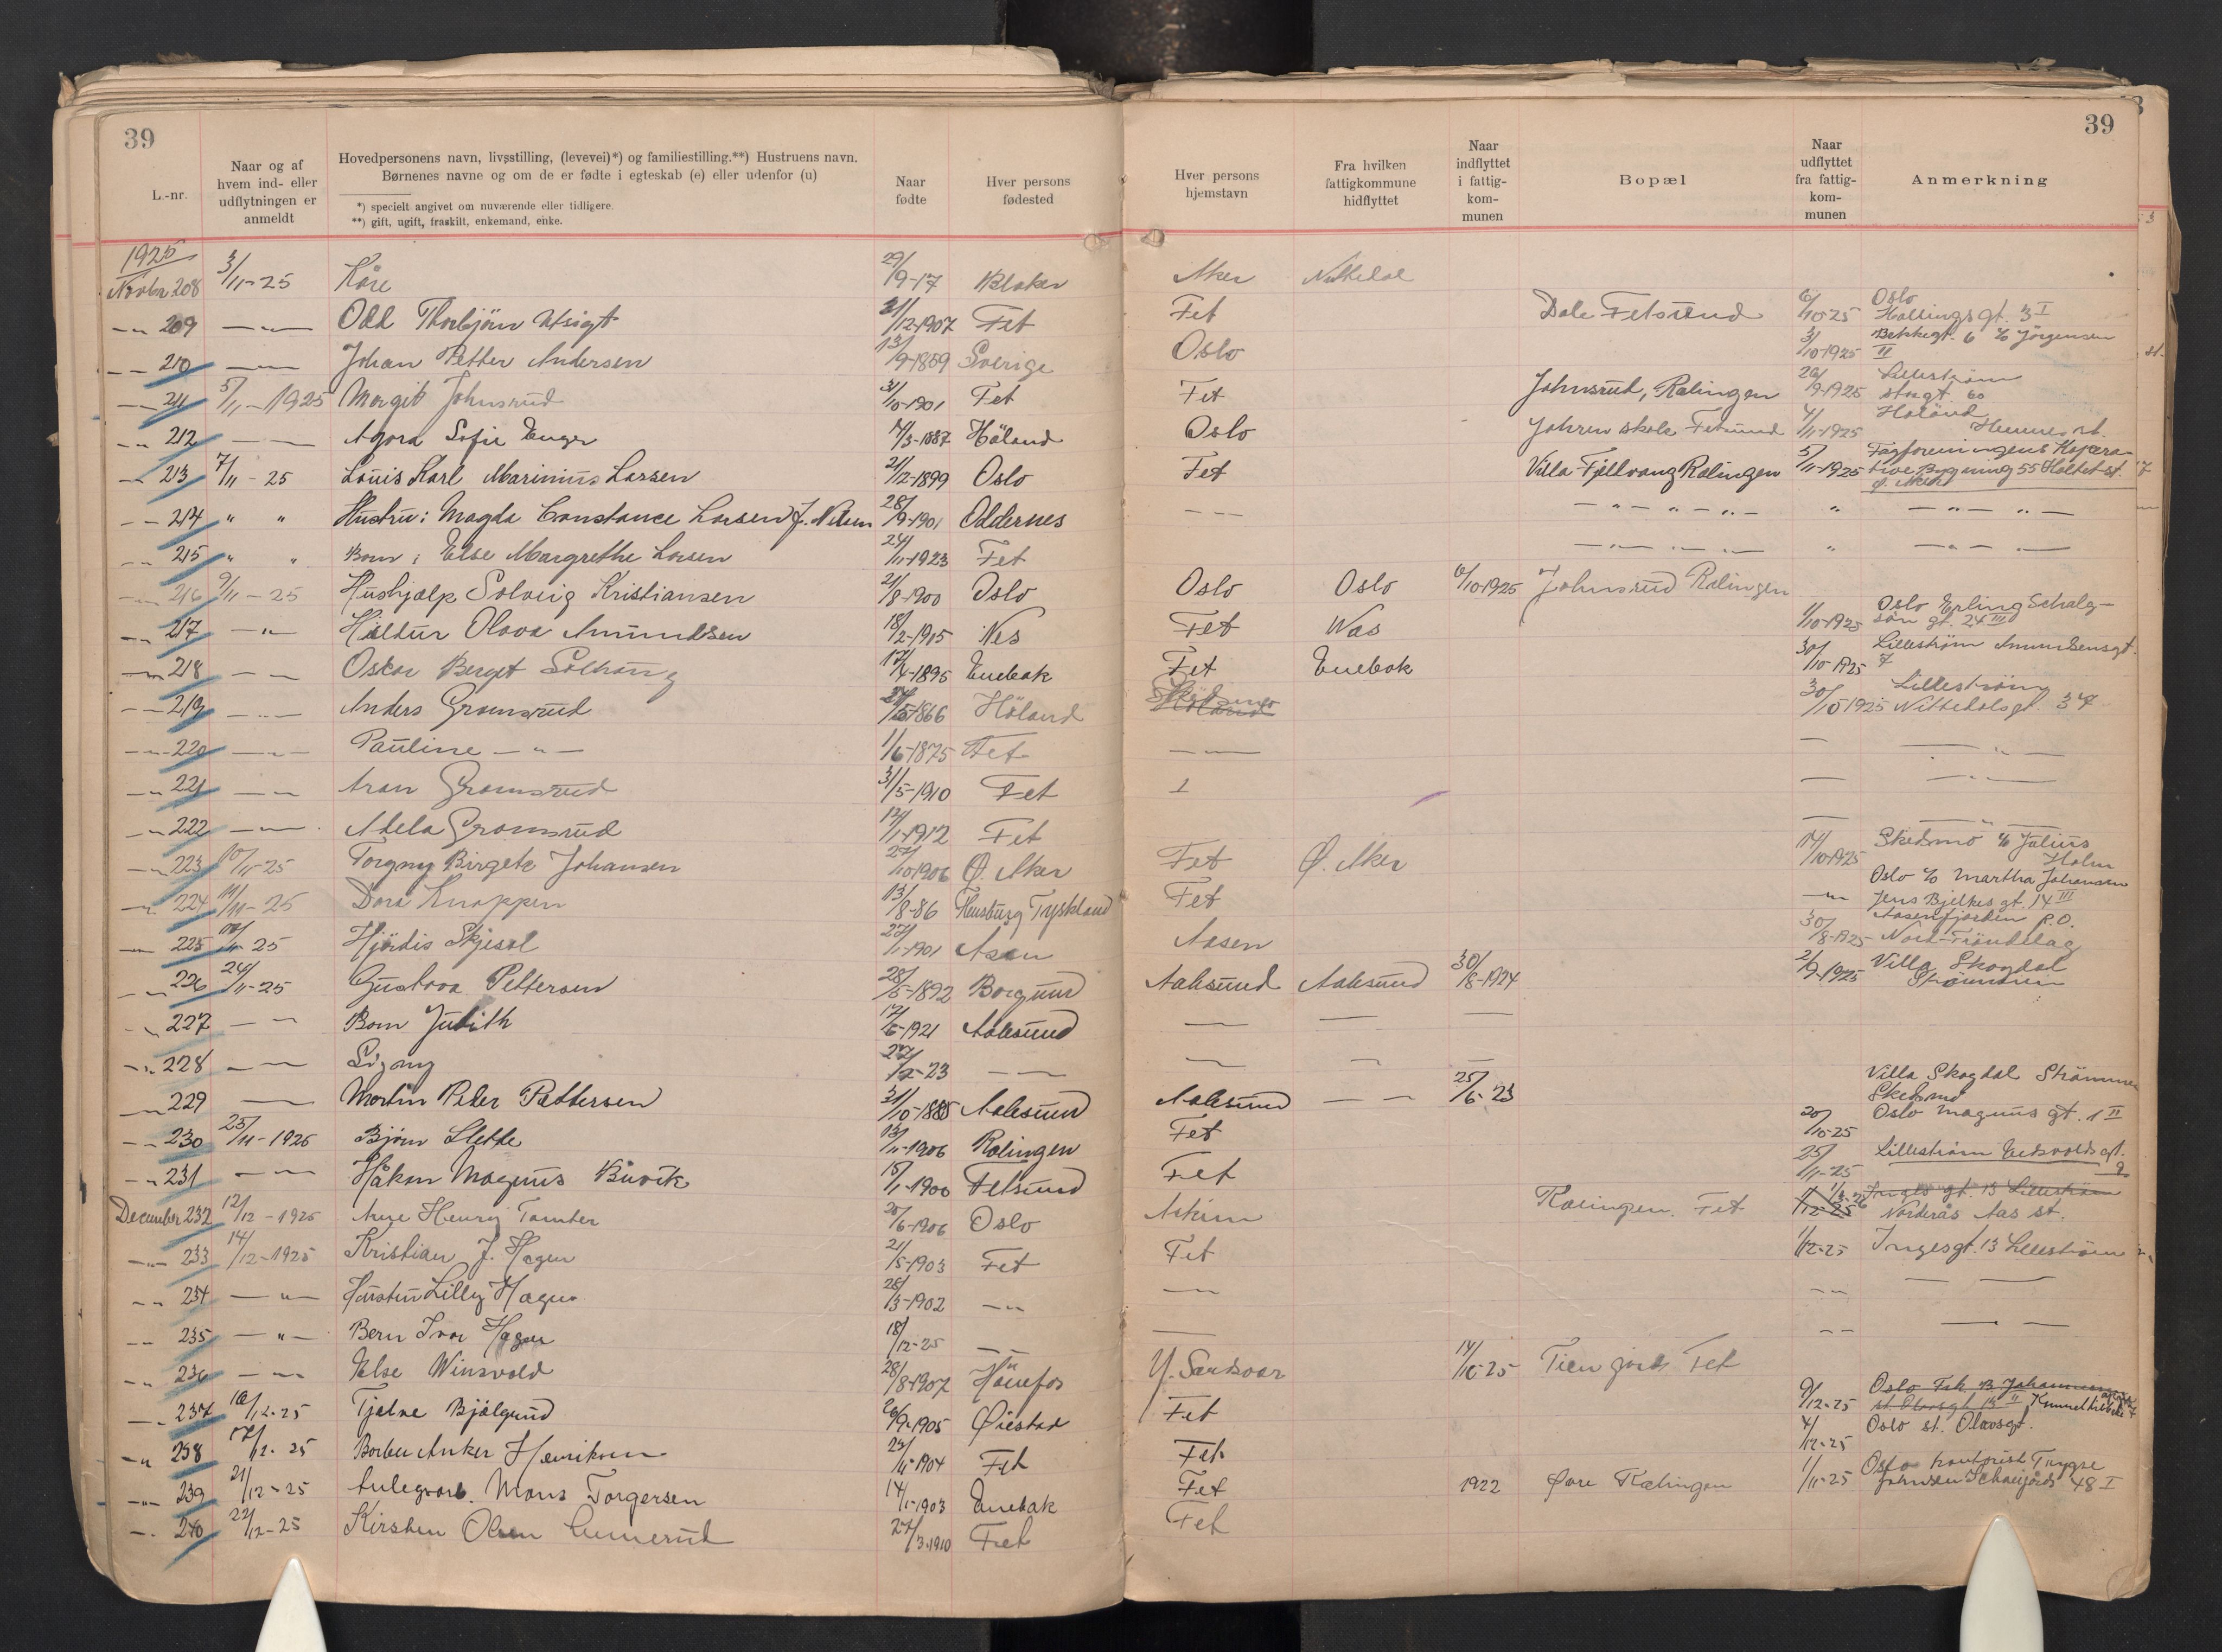 39
39
L.-nr.
Naar og af hvem ind- eller udflytningen er anmeldt
Hovedpersonens navn, livsstilling, (levevei)*) og familiestilling.**) Hustruens navn.
Børnenes navne og om de er fødte i egteskab (e) eller udenfor (u)
*) specielt angivet om nuværende eller tidligere.
**) gift, ugift, fraskilt, enkemand, enke.
Naar fødte
Hver persons fødested
Hver persons hjemstavn
Fra hvilken fattigkommune hidflyttet
Naar indflyttet i fattig-kom-munen
Bopæl
Naar udflyttet fra fattig-kom-munen
Anmerkning
1925
Novbr 208 3/11-25 Kåre 29/9-17 Blaker Aker Nittedal
209 Odd Thorbjörn Utsigt 21/12-1907 Fet Fet Dale Fetsund 6/10-25 Oslo Hallingsgt. 3 I
210 Johan Petter Andersen 13/9-1859 Sverige Oslo 3/10-1925 Bekkegt. 6 c/o Jörgensen II
211 5/11-1925 Margit Johnsrud 31/10-1901 Fet Fet Johnsrud, Rælingen 26/9-1925 Lilleström Stngt. 60
212 Agora Sofie Enger 14/3-1887 Höland Oslo Jahren skole Fetsund 4/11-1925 Höland
213 7/11-25 Louis Karl Marinius Larsen 21/12-1899 Oslo Fet Villa Fjellvang Rælingen 5/11-1925
214 " " Hustru: Magda Constance Larsen f. Nilsen 28/9-1901 Oddernes
215 " " Barn: Else Margrethe Larsen 24/11-1923 Fet
216 9/11-25 Hushjælp Solveig Kristiansen 21/8-1900 Oslo Oslo Oslo 6/10-1925 Johnsrud Rælingen
217 Hildur Olava Amundsen 18/2-1905 Nes Fet Nes 1/10-1925 Oslo Erling Schalg-sön gt. 24 III
218 Oskar Berget Solhaug 17/4-1895 Enebak Fet Enebak 30/10-1925 Lilleström Amundsensgt. 7
219 Anders Gramsrud 1866 Höland Skedsmo Höland 30/10 1925 Lilleström Nittedalsgt. 34
220 Pauline 1/6-1875 Fet
221 Aron Gramsrud 31/5-1910 Fet
222 Adela Gramsrud 1912 Fet
223 10/11-25 Torgny Birgete Johansen 27/10-1906 Ø. Aker Fet Ø. Aker 14/10-1925 Skedsmo c/o Julius Holm
224 11/11-25 Dora Knappen 13/8-86 Flensburg Tyskland Fet Oslo c/o Martha Johansen Jens Bjelkes gt. 14 III
225 25 Hjördis Skjesol 27/1-1901 Åsen Aasen 30/8-1925 Aasenfjorden P.O. Nord-Tröndelag
226 24/11-25 Gustava Pettersen 28/5-1892 Borgund Aalesund Aalesund 30/8-1924 2/9-1925 Villa Skogdal Strömmen
227 Barn Judith 17/6-1921 Aalesund
228 Signy 23
229 Martin Peter Pettersen 31/10-1885 Aalesund Aalesund 25/6-23 Villa Skogdal Strömmen Skedsmo
230 25/11-1925 Björn Slette 13/11-1906 Rælingen Fet 20/10-25 Oslo Magnus gt. 1 II
231 Håkon Magnus Buvik 15/1-1900 Fetsund Fet 25/11-25 Lilleström Eidsvoldsgt. 9
December 232 12/12-1925 Arne Henry Tomter 20/6-1906 Oslo Askim Rælingen. Fet Inges gt. 13 Lilleström Norderås Aas st.
233 14/12-1925 Kristian J. Hagen 21/5-1903 Fet Fet 1/12-25 Ingesgt. 13 Lilleström
234 Hustru Lilly Hagen 28/3-1902
235 Barn Ivar Hagen 18/12-25
236 Else Winsvold 28/8-1907 Hönefos Y. Sandsvær 14/10-25 Tien gård Fet
237 16/12-25 Tjalve Bjölgerud 26/9-1905 Øiestad Fet 9/12-25 Oslo
238 17/12-25 Anker Henriksen 1904 Fet Fet 4/12-25 Oslo st. Olavsgt.
239 21/12-25 Anlegsarb. Mons Torgersen 14/1-1903 Enebak Fet 1922 Øvre Rælingen 1/11-25 Oslo 48 I
240 22/12-25 Kirsten Olsen 27/3-1910 Fet Fet